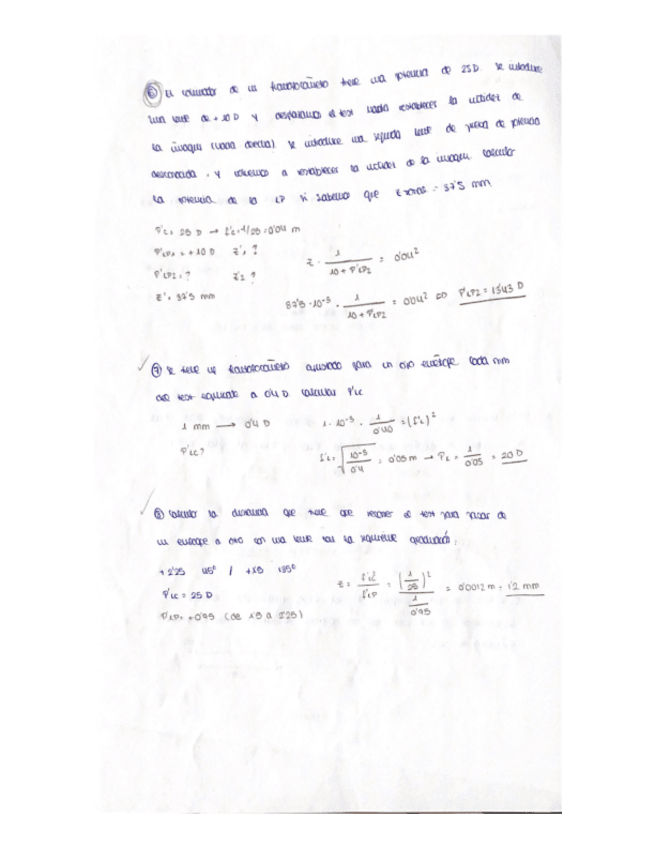 ⑥ El colimador de un frontofocómetro tiene una potencia de 25 D. Se introduce
una lente de +10 D y desplazamos el test hasta restablecer la nitidez de
la imagen (vista directa). Se introduce una segunda lente de prueba de potencia
desconocida, y volvemos a restablecer la nitidez de la imagen. Calcular
la potencia de la LP si sabemos que = 37'5 mm
P'LC = 25 D → f'LC = 1/25 = 0'04 m
P'LP1 = +10 D z'1 ?
z · 1 / (10 + P'LP2) = 0'04²
P'LP2 = ? z'2 ?
z' = 37'5 mm
37'5 · 10⁻³ · 1 / (10 + P'LP2) = 0'04² P'LP2 = 13'43 D
⑦ Se tiene un frontofocómetro ajustado para un ojo emétrope. Cada mm
del test equivale a 0'4 D. Calcular P'LC
1 mm → 0'4 D 1 · 10⁻³ · 1 / 0'40 = (f'L)²
P'LC ?
f'L = √(10⁻³ / 0'4) = 0'05 m → PL = 1 / 0'05 = 20 D
⑧ Calcular la distancia que tiene que recorrer el test para pasar de
un enfoque a otro con una lente con la siguiente graduación:
+2'25 45º / +1'5 135º
P'LC = 25 D
z = f'LC² / f'LP = (1/25)² / (1/0'75) = 0'0012 m = 1'2 mm
P'LP = +0'75 (de 1'5 a 2'25)